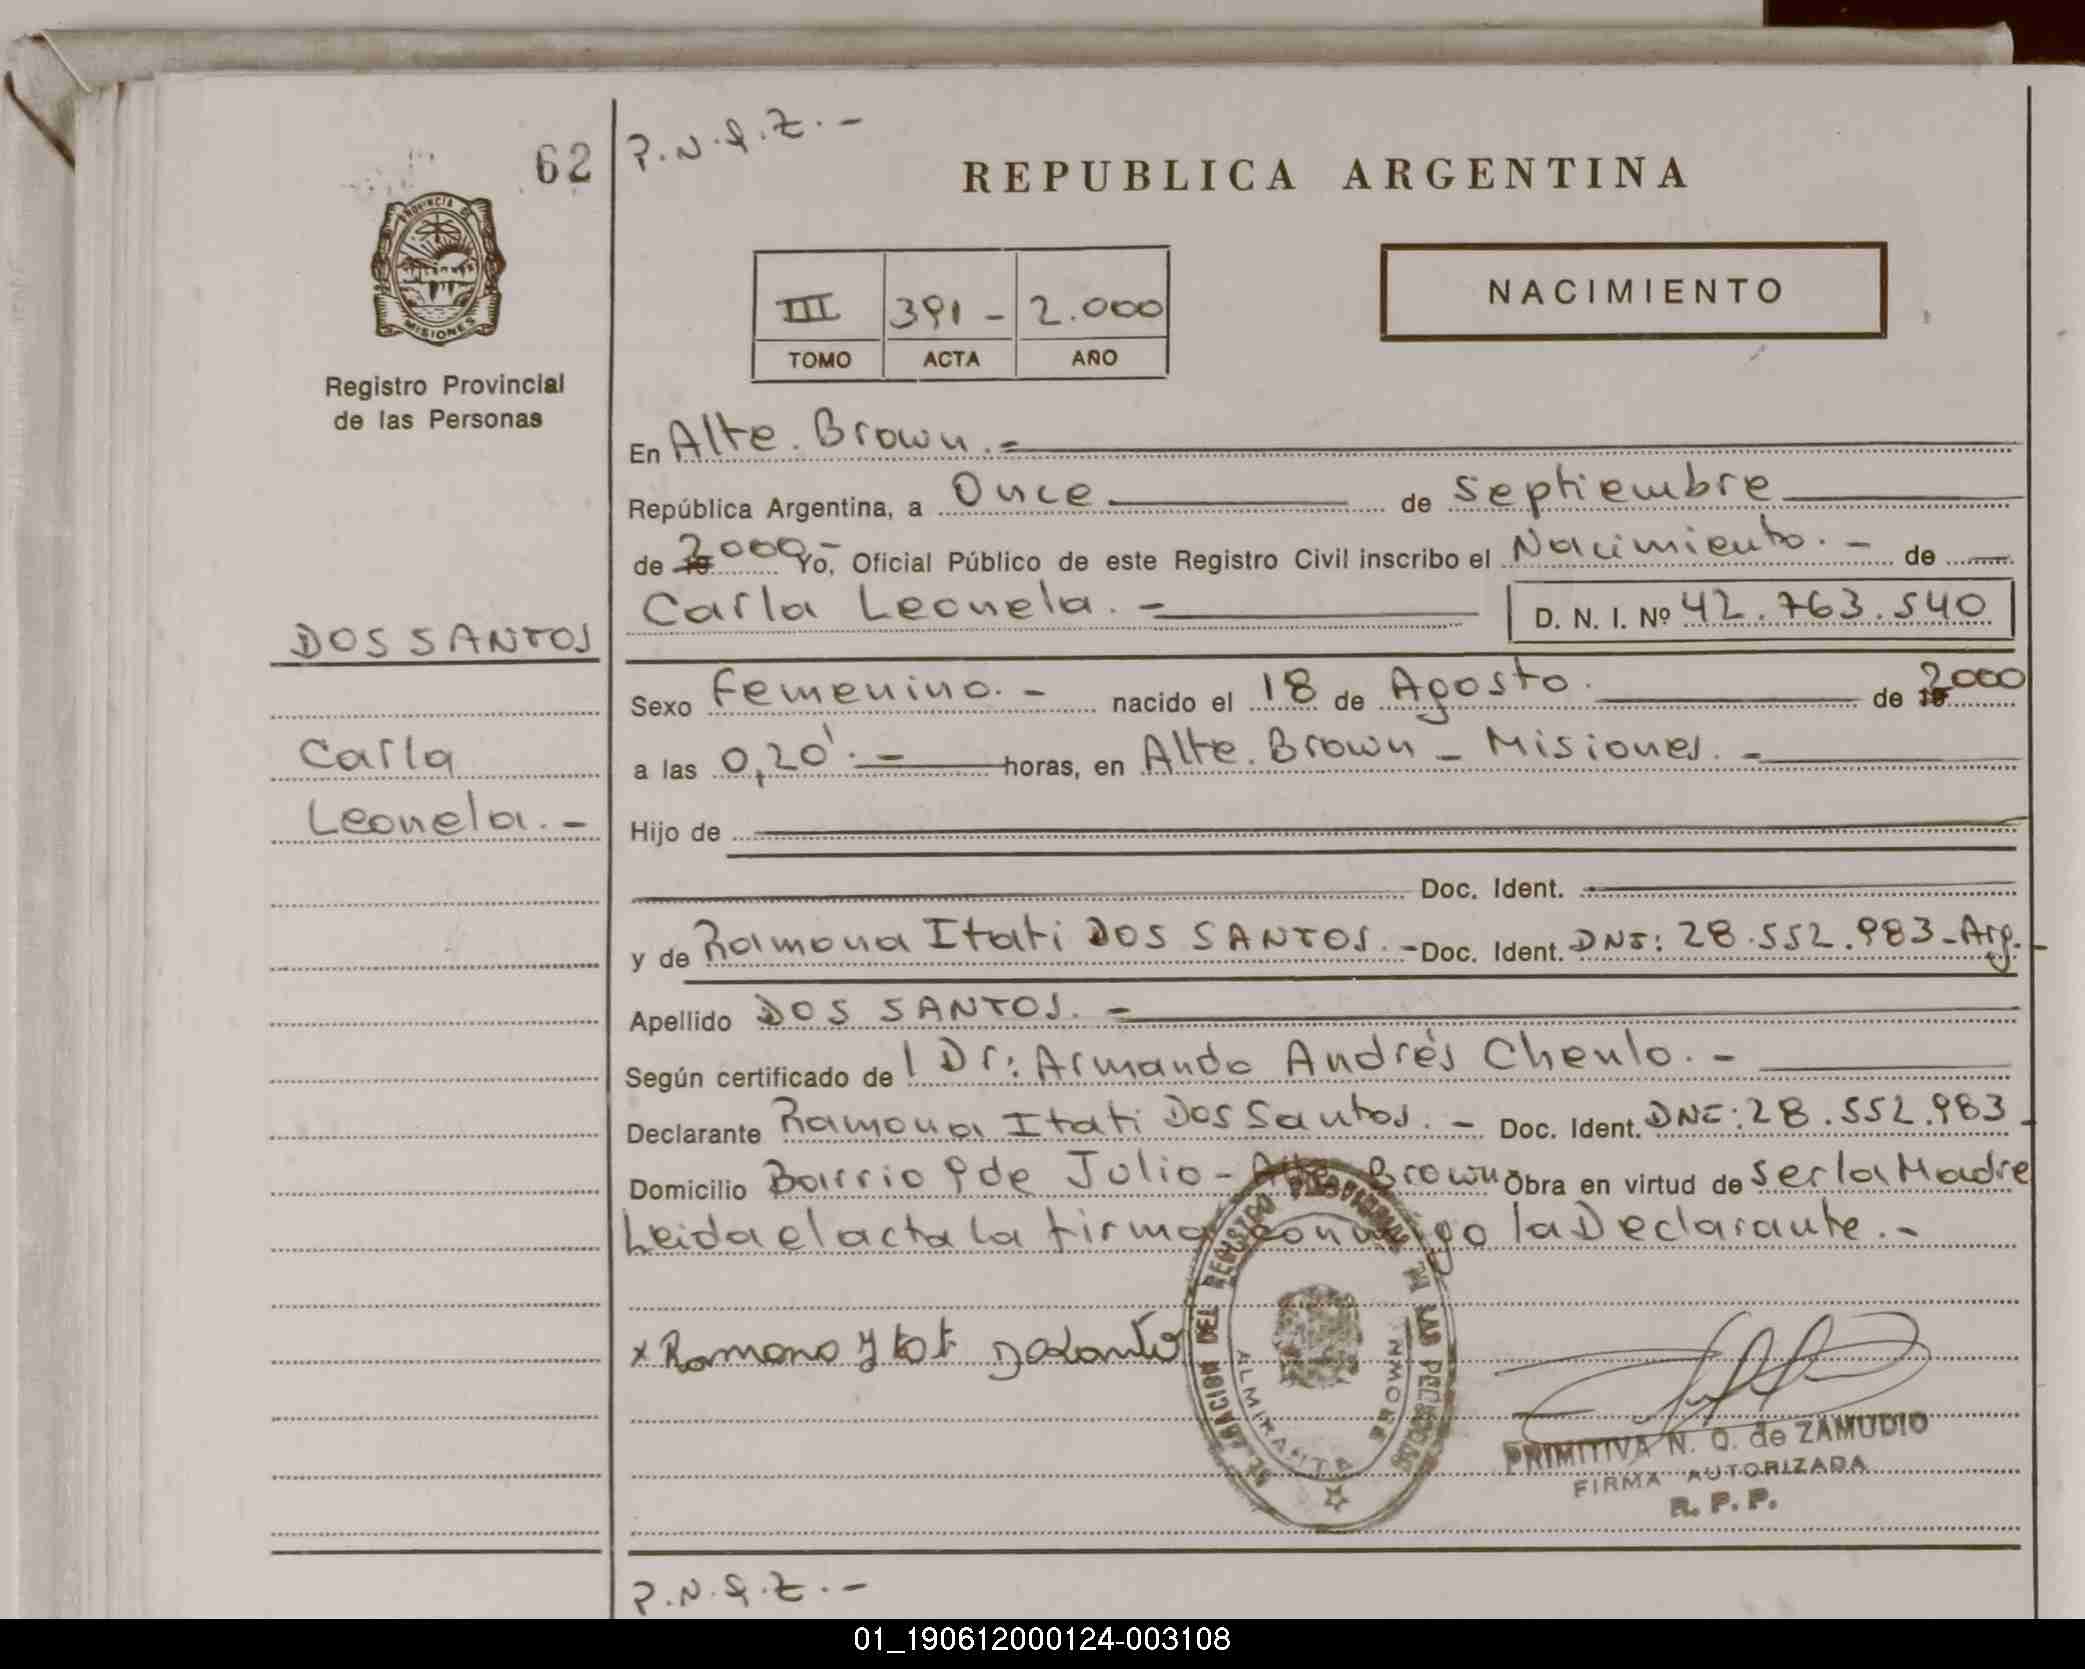 62
P.N.Q.Z.-
REPUBLICA ARGENTINA
PROVINCIA DE MISIONES
III 391- 2.000
TOMO ACTA AÑO
NACIMIENTO
Registro Provincial
de las Personas
En Alte. Brown.-
República Argentina, a Once de Septiembre
de 2000- Yo, Oficial Público de este Registro Civil inscribo el Nacimiento.- de
Carla Leonela.- D. N. I. Nº 42.763.540
DOS SANTOS
Sexo Femenino.- nacido el 18 de Agosto. de 2000
Carla
a las 0,20'.- horas, en Alte. Brown - Misiones.-
Leonela.-
Hijo de
Doc. Ident.
y de Ramona Itati DOS SANTOS.- Doc. Ident. DNI: 28.552.983-Arg.-
Apellido DOS SANTOS.-
Según certificado de l Dr: Armando Andrés Chenlo.-
Declarante Ramona Itati Dos Santos.- Doc. Ident. DNI: 28.552.983-
Domicilio Barrio 9 de Julio - Alte. Brown Obra en virtud de ser la Madre
Leida el acta la firma conmigo la Declarante.-
x Ramona Ytati
DEL REGISTRO PROVINCIAL DE LAS PERSONAS
ALMIRANTE BROWN
PRIMITIVA N. Q. de ZAMUDIO
FIRMA AUTORIZADA
R. P. P.
P.N.Q.Z.-
01_190612000124-003108